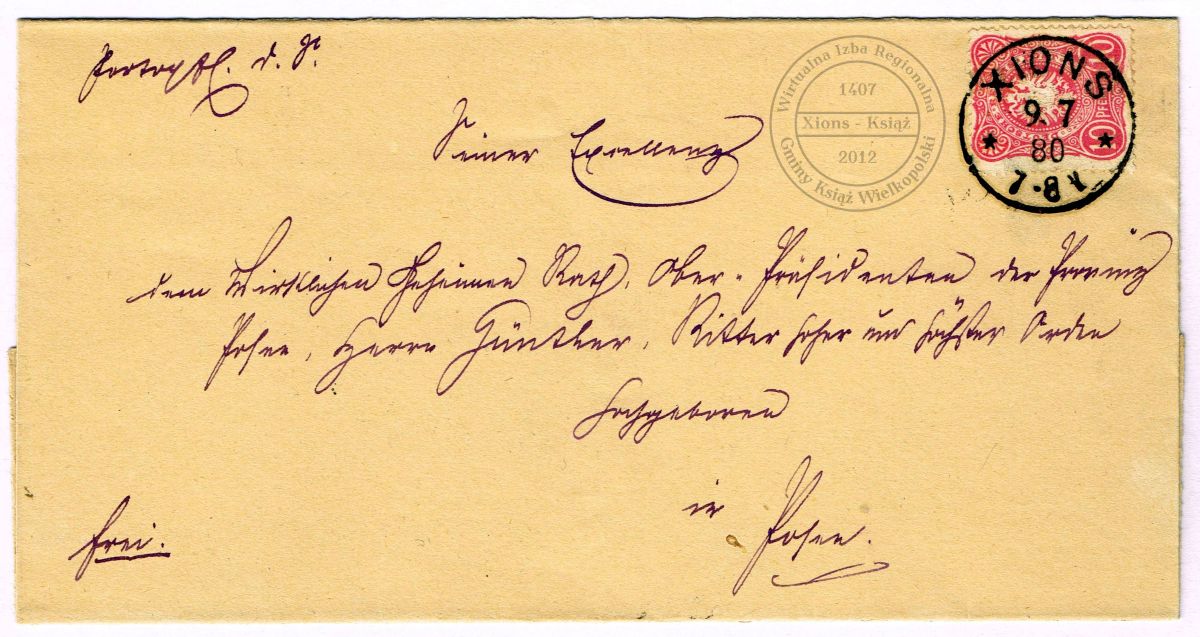 Portopfl. d. S.
Seiner Excellenz
dem Wirklichen Geheimen Rath, Ober-Präsidenten der Provinz
Posen, Herrn Günther, Ritter hoher und höchster Orden
Hochgeboren
in
Posen.
frei.
XIONS
9. 7
80
7-8 V
10 PFEN
Wirtualna Izba Regionalna
1407
Xions - Książ
2012
Gminy Książ Wielkopolski